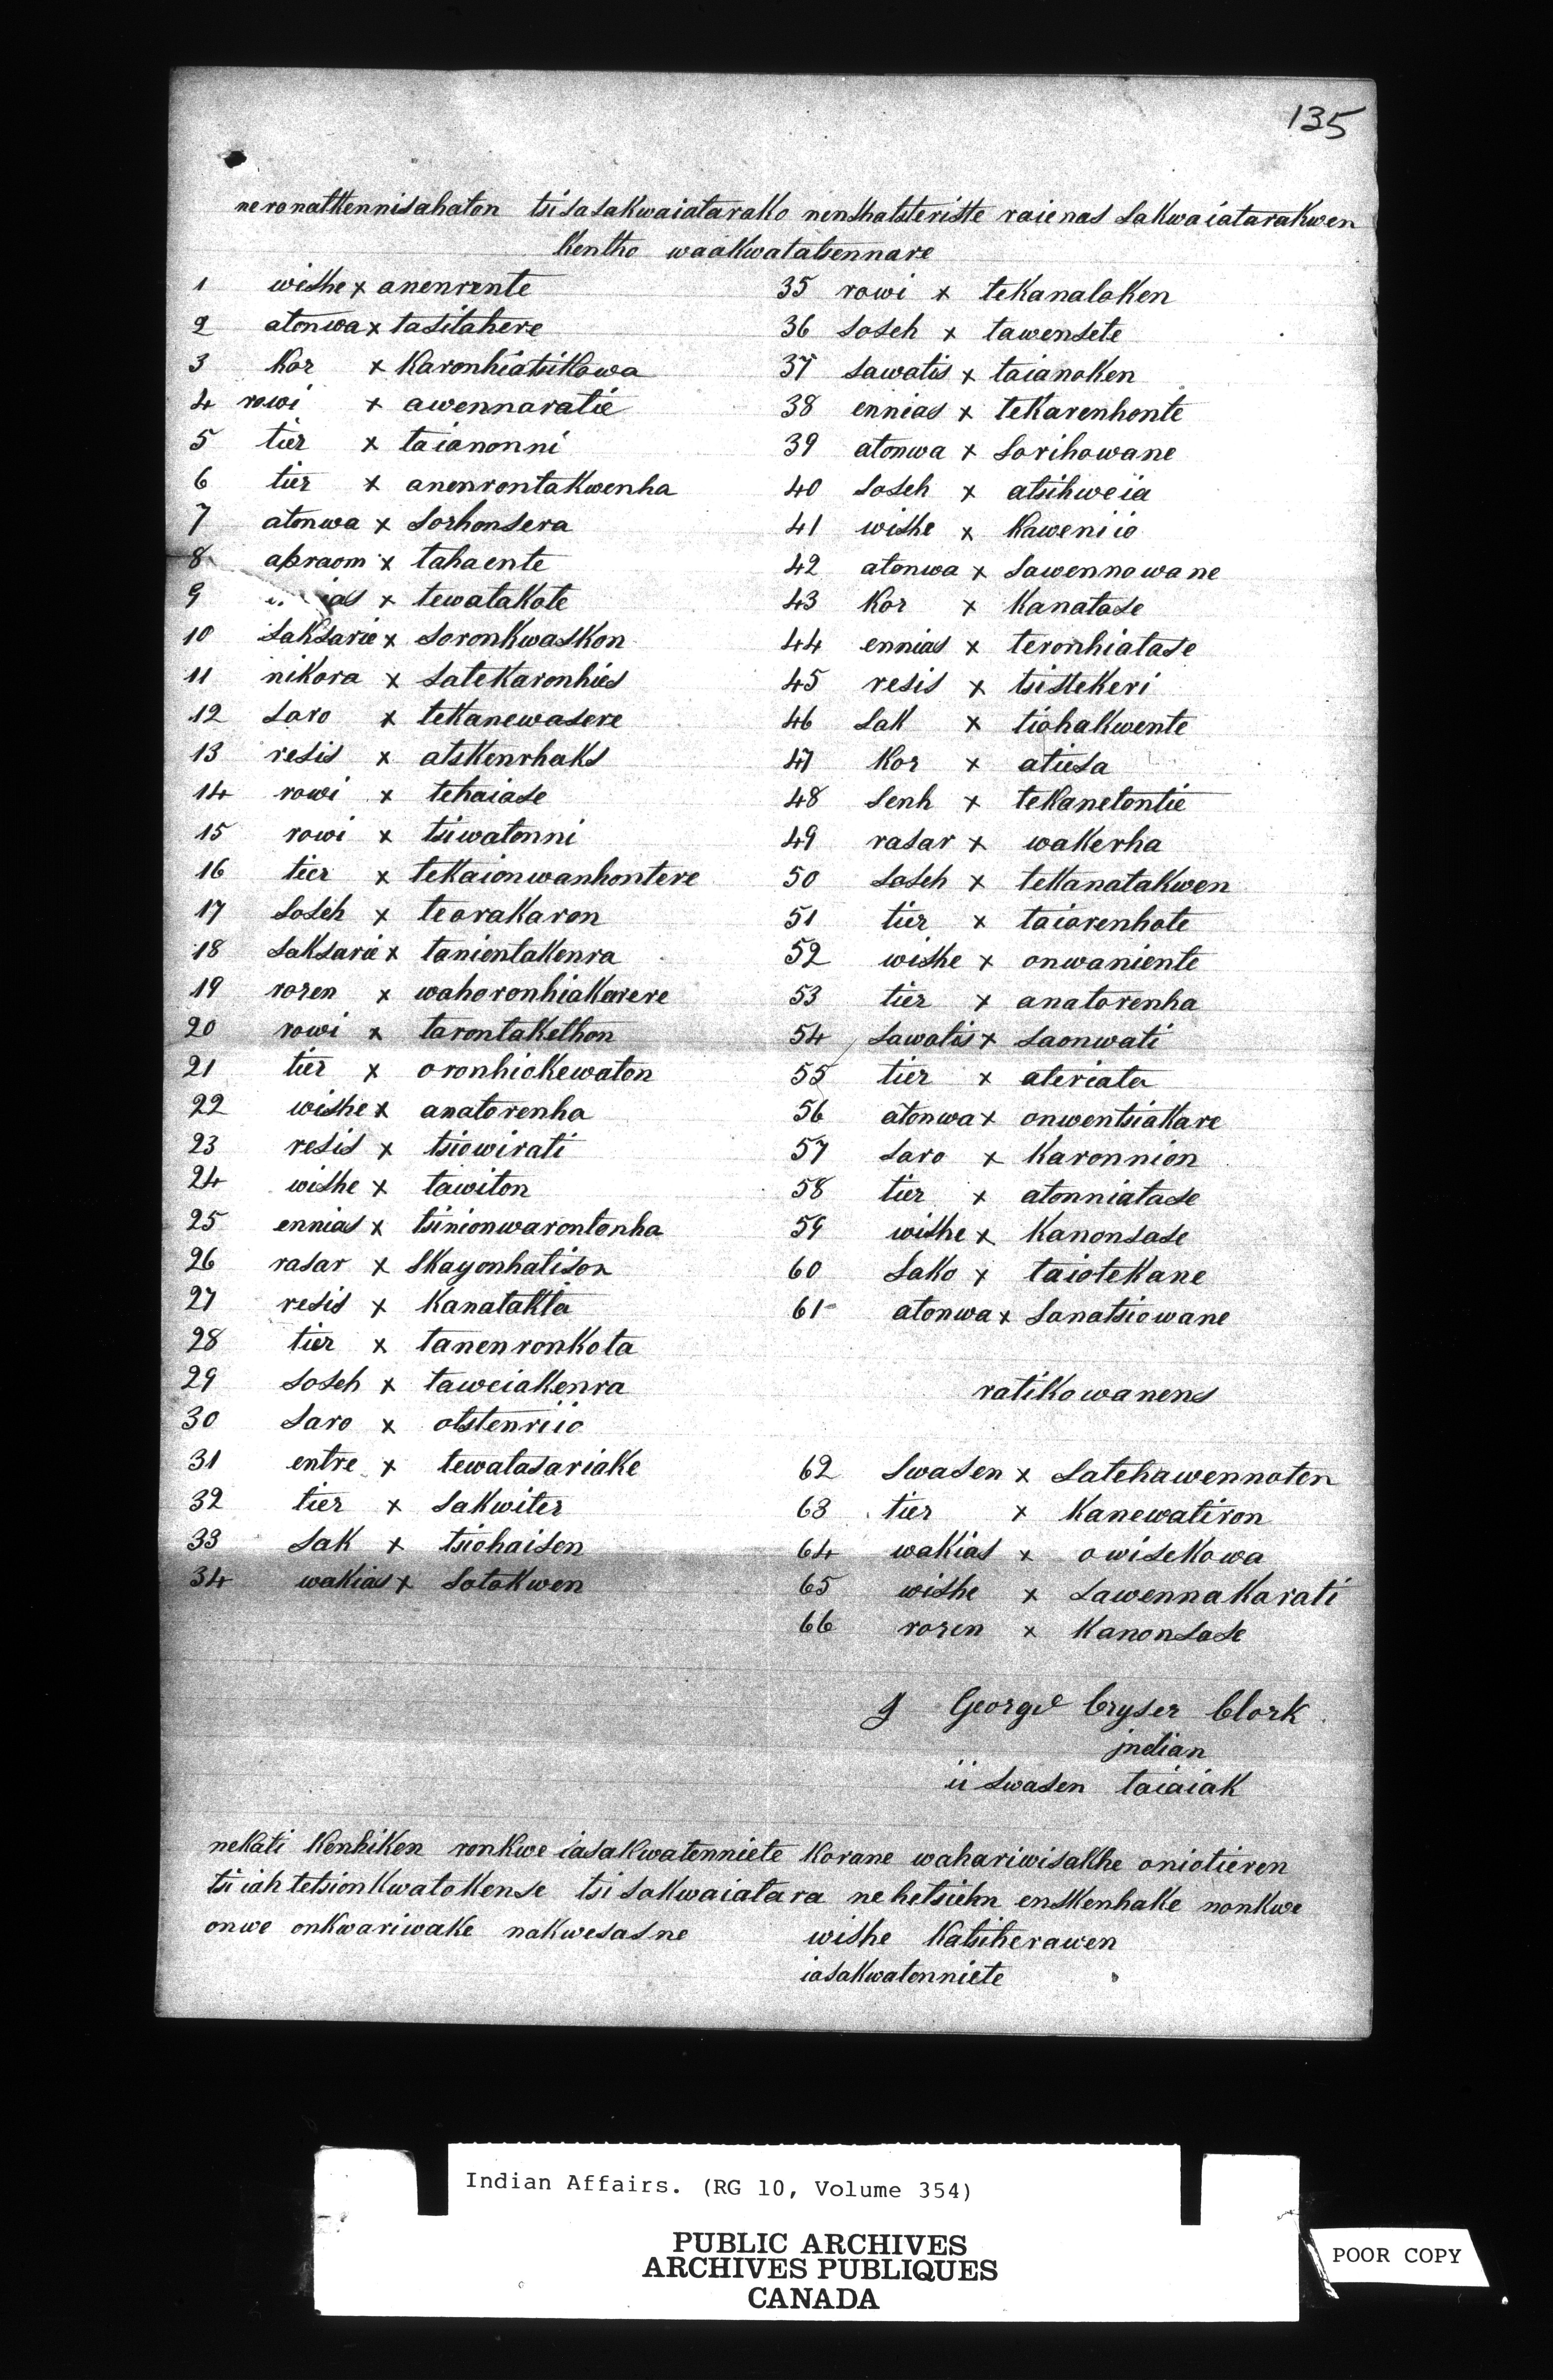 135
neronatkennisahaton tsisasakwaiatarako nenshatsteriste raienas sakwaiatarakwen
kentho waakwatatsennare
1 wishe x anenrente
2 atonwa x tasitahere
3 kor x karonhiatsikowa
4 rowi x awennaratie
5 tier x taianonni
6 tier x anenrontakwenha
7 atonwa x sorhonsera
8 apraom x tahaente
9 x tewatakote
10 saksarie x soronkwaskon
11 nikora x satekaronhies
12 saro x tekanewasere
13 resis x atskenrhaks
14 rowi x tehaiase
15 rowi x tsiwatonni
16 tier x tekaionwanhontere
17 soseh x teorakaron
18 saksarie x tanientakenra
19 roren x wahoronhiakarere
20 rowi x tarontakethon
21 tier x oronhiokewaton
22 wishe x anatorenha
23 resis x tsiowirati
24 wishe x tawiton
25 ennias x tsinionwarontonha
26 rasar x skayonhatison
27 resis x kanatakta
28 tier x tanenronkota
29 soseh x taweiakenra
30 saro x otstenriio
31 entre x tewatasariake
32 tier x sakwiter
33 sak x tsiohaisen
34 wakias x sotakwen
35 rowi x tekanaloken
36 soseh x tawensete
37 sawatis x taianoken
38 ennias x tekarenhonte
39 atonwa x sorihowane
40 soseh x atsihweia
41 wishe x kaweniio
42 atonwa x sawennowane
43 kor x kanatase
44 ennias x teronhiatase
45 resis x tsistekeri
46 sak x tiohakwente
47 kor x atiesa
48 senh x tekanetontie
49 rasar x wakerha
50 soseh x tekanatakwen
51 tier x taiorenhote
52 wishe x onwaniente
53 tier x anatorenha
54 sawatis x saonwati
55 tier x ateriata
56 atonwa x onwentsiakare
57 saro x karonnion
58 tier x atonniatase
59 wishe x kanonsase
60 sako x taiotekane
61 atonwa x sanatsiowane
ratikowanens
62 swasen x satehawennoten
63 tier x kanewatiron
64 wakias x owisekowa
65 wishe x sawennakarati
66 roren x kanonsase
J George Cryser Clork
indian
ii swasen taiaiak
nekati kenhiken ronkwe iasakwatenniete korane wahariwisakhe oniotieren
tsi iah tetsionkwatokense tsi sakwaiatara ne hetsiehn enskenhake nonkwe
onwe onkwariwake nakwesasne wishe katsiherawen
iasakwatenniete
Indian Affairs. (RG 10, Volume 354)
PUBLIC ARCHIVES
ARCHIVES PUBLIQUES
CANADA
POOR COPY